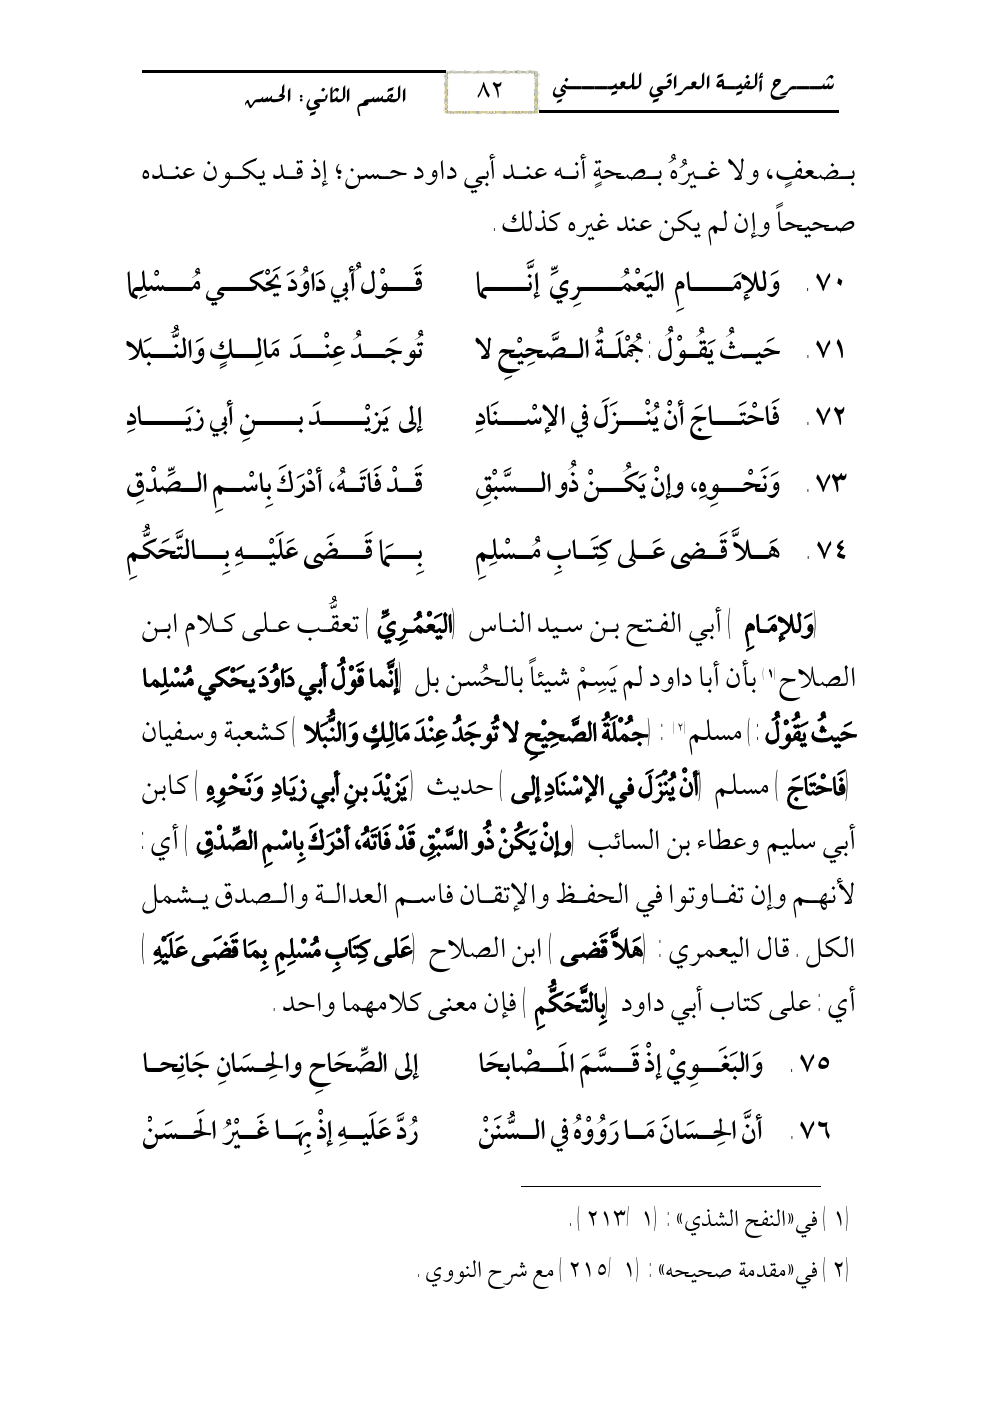 شـــرح ألفيـة العراقي للعيـــني
٨٢
القسم الثاني: الحسن
بضعفٍ، ولا غيرُهُ بصحةٍ أنه عند أبي داود حسن؛ إذ قد يكون عنده
صحيحاً وإن لم يكن عند غيره كذلك .
٧٠ . وَللإمَامِ اليَعْمُرِيِّ إنَّما قَوْلُ أبي دَاوُدَ يَحْكي مُسْلِما
٧١ . حَيثُ يَقُوْلُ : جُمْلَةُ الصَّحِيْحِ لا تُوجَدُ عِنْدَ مَالِكٍ وَالنُّبَلا
٧٢ . فَاحْتَاجَ أنْ يُنْزَلَ في الإسْنَادِ إلى يَزيْدَ بنِ أبي زيَادِ
٧٣ . وَنَحْوِهِ، وإنْ يَكُنْ ذُو السَّبْقِ قَدْ فَاتَهُ، أدْرَكَ بِاسْمِ الصِّدْقِ
٧٤ . هَلاَّ قَضى عَلى كِتَابِ مُسْلِمِ بِمَا قَضَى عَلَيْهِ بِالتَّحَكُّمِ
(وَللإمَامِ) أبي الفتح بن سيد الناس (اليَعْمُرِيِّ) تعقُّب على كلام ابن
الصلاح(١) بأن أبا داود لم يَسِمْ شيئاً بالحُسن بل (إنَّما قَوْلُ أبي دَاوُدَ يَحْكي مُسْلِما
حَيثُ يَقُوْلُ :) مسلم(٢) : (جُمْلَةُ الصَّحِيْحِ لا تُوجَدُ عِنْدَ مَالِكٍ وَالنُّبَلا) كشعبة وسفيان
(فَاحْتَاجَ) مسلم (أنْ يُنْزَلَ في الإسْنَادِ إلى) حديث (يَزيْدَ بنِ أبي زيَادِ وَنَحْوِهِ) كابن
أبي سليم وعطاء بن السائب (وإنْ يَكُنْ ذُو السَّبْقِ قَدْ فَاتَهُ، أدْرَكَ بِاسْمِ الصِّدْقِ) أي :
لأنهم وإن تفاوتوا في الحفظ والإتقان فاسم العدالة والصدق يشمل
الكل . قال اليعمري : (هَلاَّ قَضى) ابن الصلاح (عَلى كِتَابِ مُسْلِمِ بِمَا قَضَى عَلَيْهِ)
أي : على كتاب أبي داود (بِالتَّحَكُّمِ) فإن معنى كلامهما واحد .
٧٥ . وَالبَغَوِيْ إذْ قَسَّمَ المَصْابحَا إلى الصِّحَاحِ والحِسَانِ جَانِحا
٧٦ . أنَّ الحِسَانَ مَا رَوُوْهُ في السُّنَنْ رُدَّ عَلَيهِ إذْ بِهَا غَيْرُ الحَسَنْ
(١) في «النفح الشذي» : (١ /٢١٣).
(٢) في «مقدمة صحيحه» : (١ /٢١٥) مع شرح النووي .